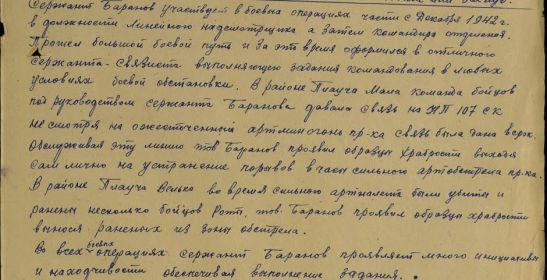 Сержант Баранов участвует в боевых операциях части с декабря 1942 г.
в должности линейного надсмотрщика а затем командира отделения.
Прошел большой боевой путь и за это время оформился в отличного
сержанта-связиста выполняющего задания командования в любых
условиях боевой обстановки. В районе Плауча Мала команда бойцов
под руководством сержанта Баранова давала связь на НП 107 ск
не смотря на ожесточенный артминогонь пр-ка связь была дана в срок.
Обслуживая эту линию тов Баранов проявил образцы храбрости выходя
сам лично на устранение порывов в часы сильного артобстрела пр-ка.
В районе Плауча Велико во время сильного артналета были убиты и
ранены несколько бойцов роты, тов. Баранов проявил образцы храбрости
вынося раненых из зоны обстрела.
Во всех боевых операциях сержант Баранов проявляет много инициативы
и находчивости обеспечивая выполнение задания.